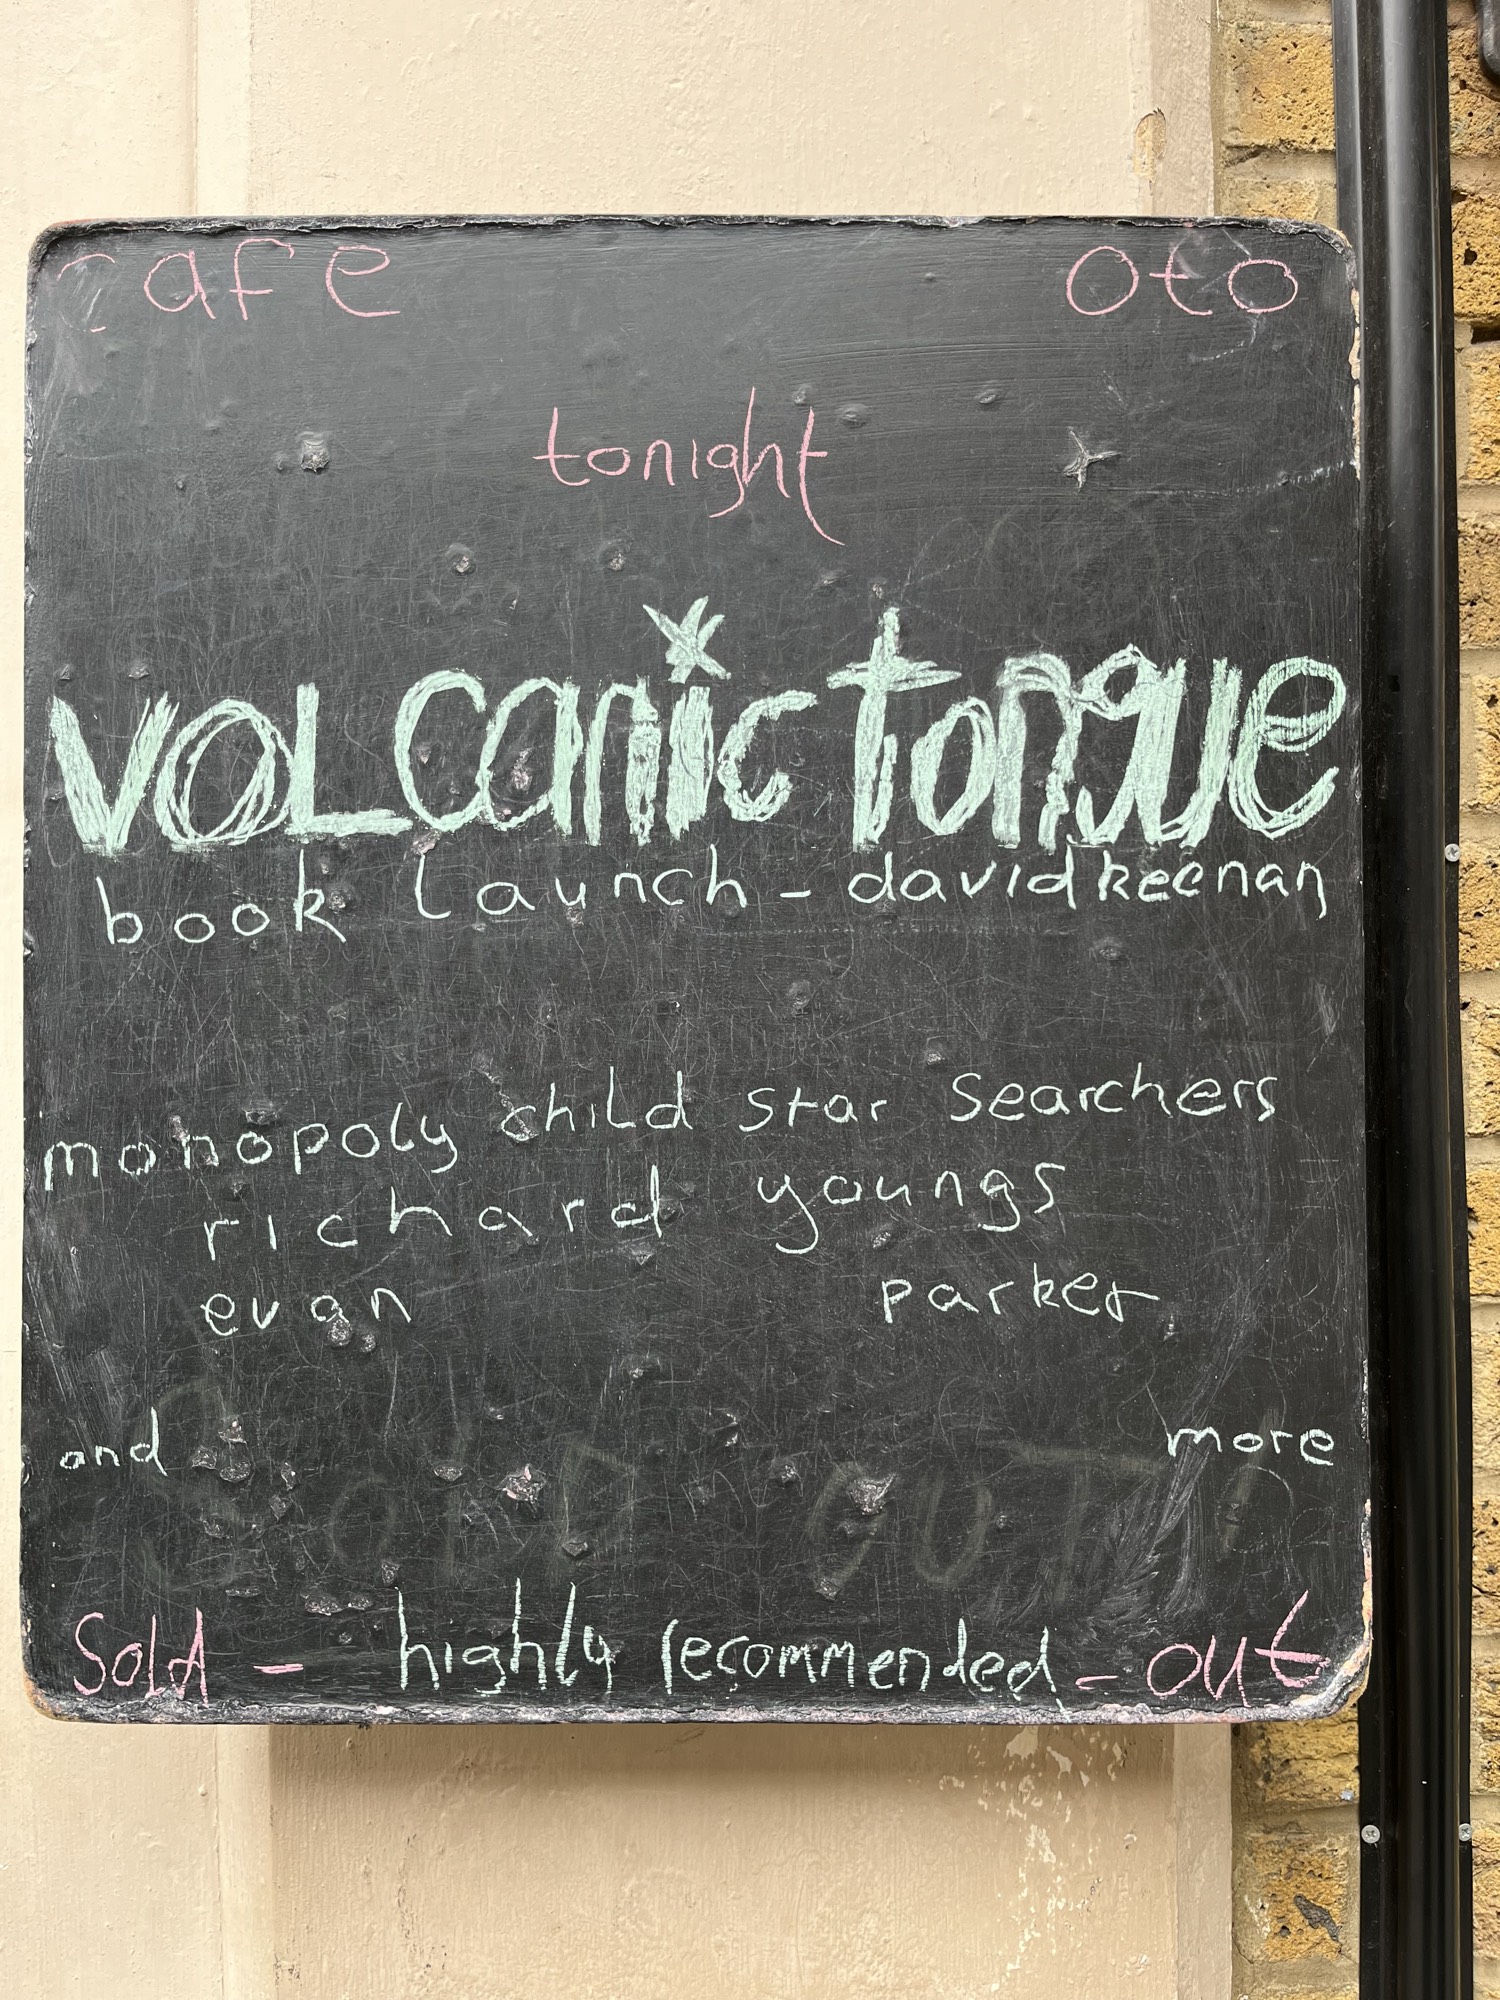 cafe oto
tonight
volcanic tongue
book launch - david keenan
monopoly child star searchers
richard youngs
evan parker
and more
Sold - highly recommended - out
SOLD OUT!